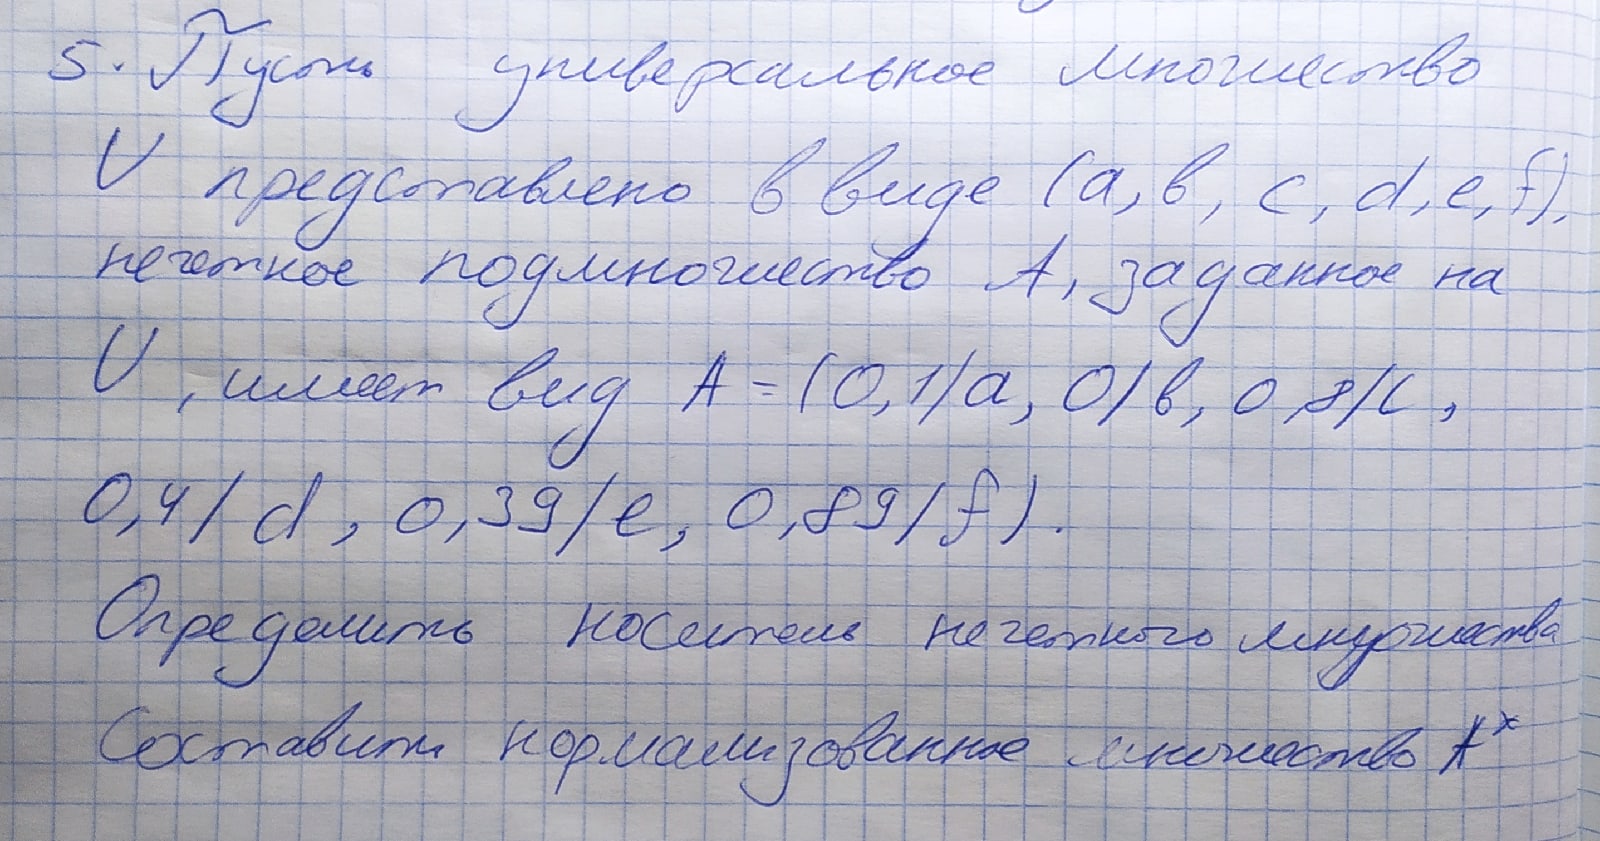 5. Пусть универсальное множество
U представлено в виде (a, в, c, d, e, f),
нечеткое подмножество A, заданное на
U, имеет вид A = (0,1/a, 0/в, 0,8/c,
0,4/d, 0,39/e, 0,89/f).
Определить носитель нечеткого множества
Составить нормализованное множество A*